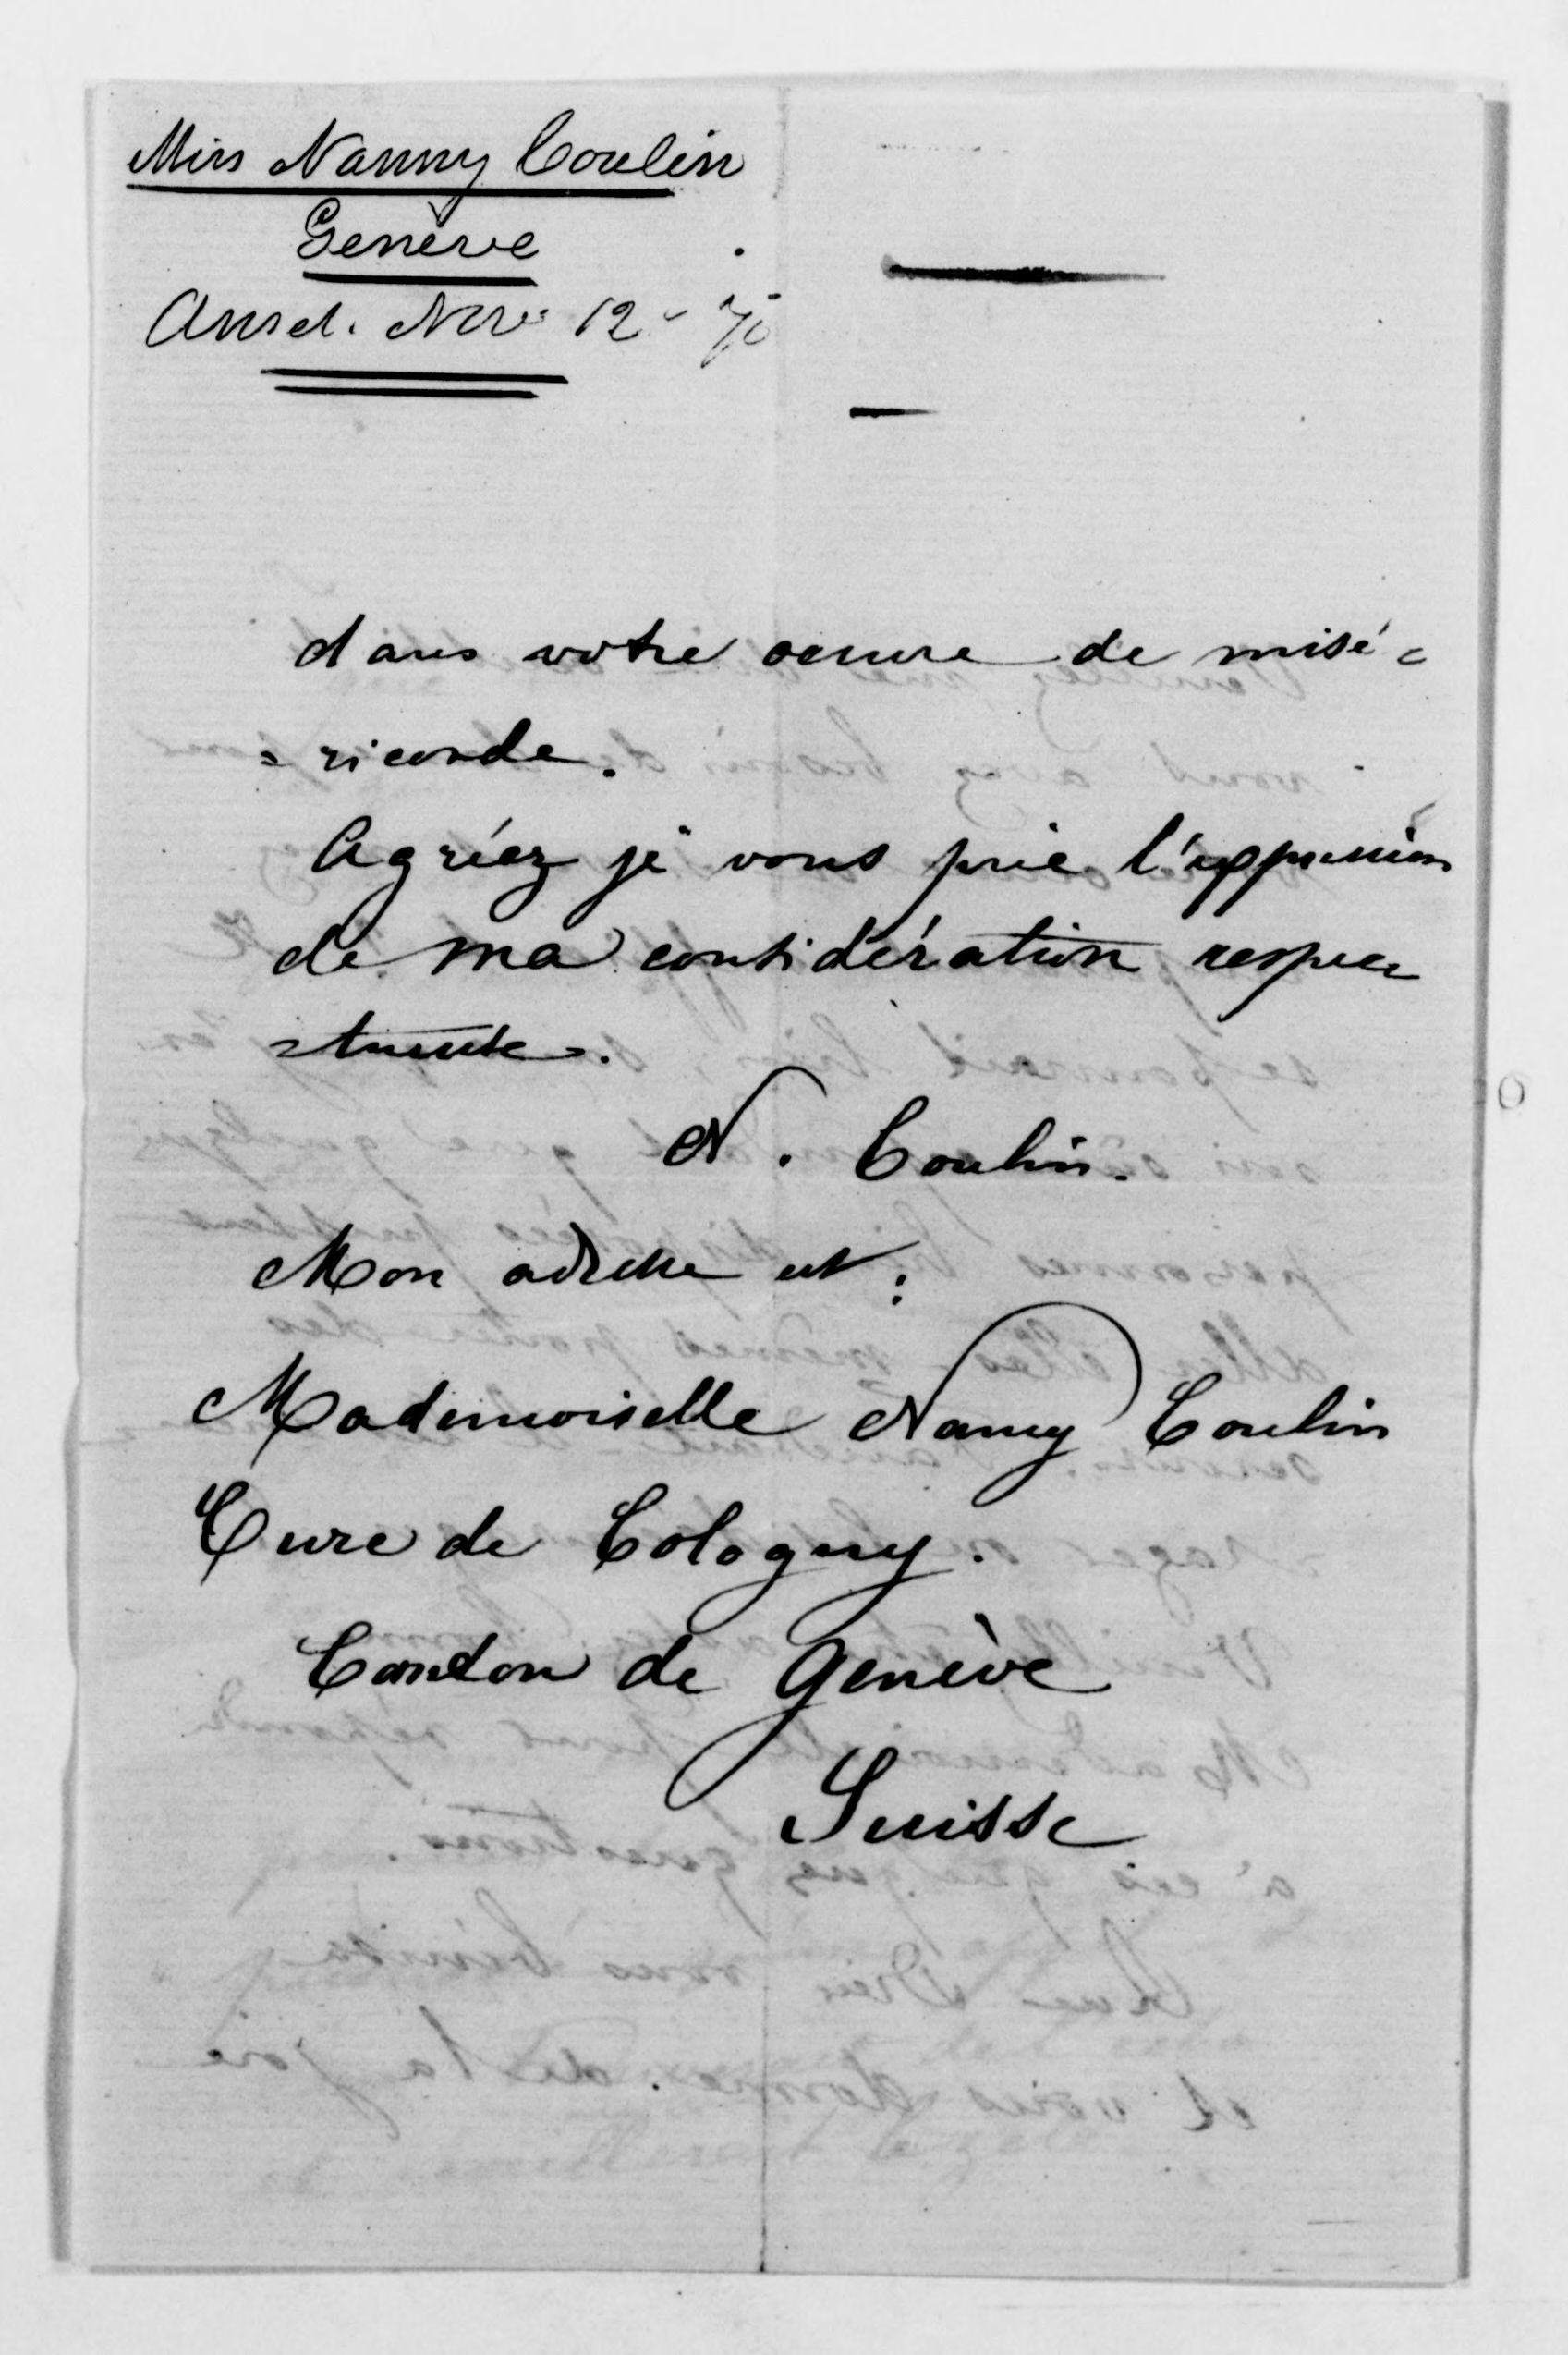 Miss Nanny Coulin
Genève
Ansd. Nov. 12 - 70
dans votre oeuvre de misé=
=ricorde.
Agréez je vous prie l'expression
de ma considération respec
=tueuse.
N. Coulin.
Mon adresse est:
Mademoiselle Nancy Coulin
Cure de Cologny.
Canton de Genève
Suisse